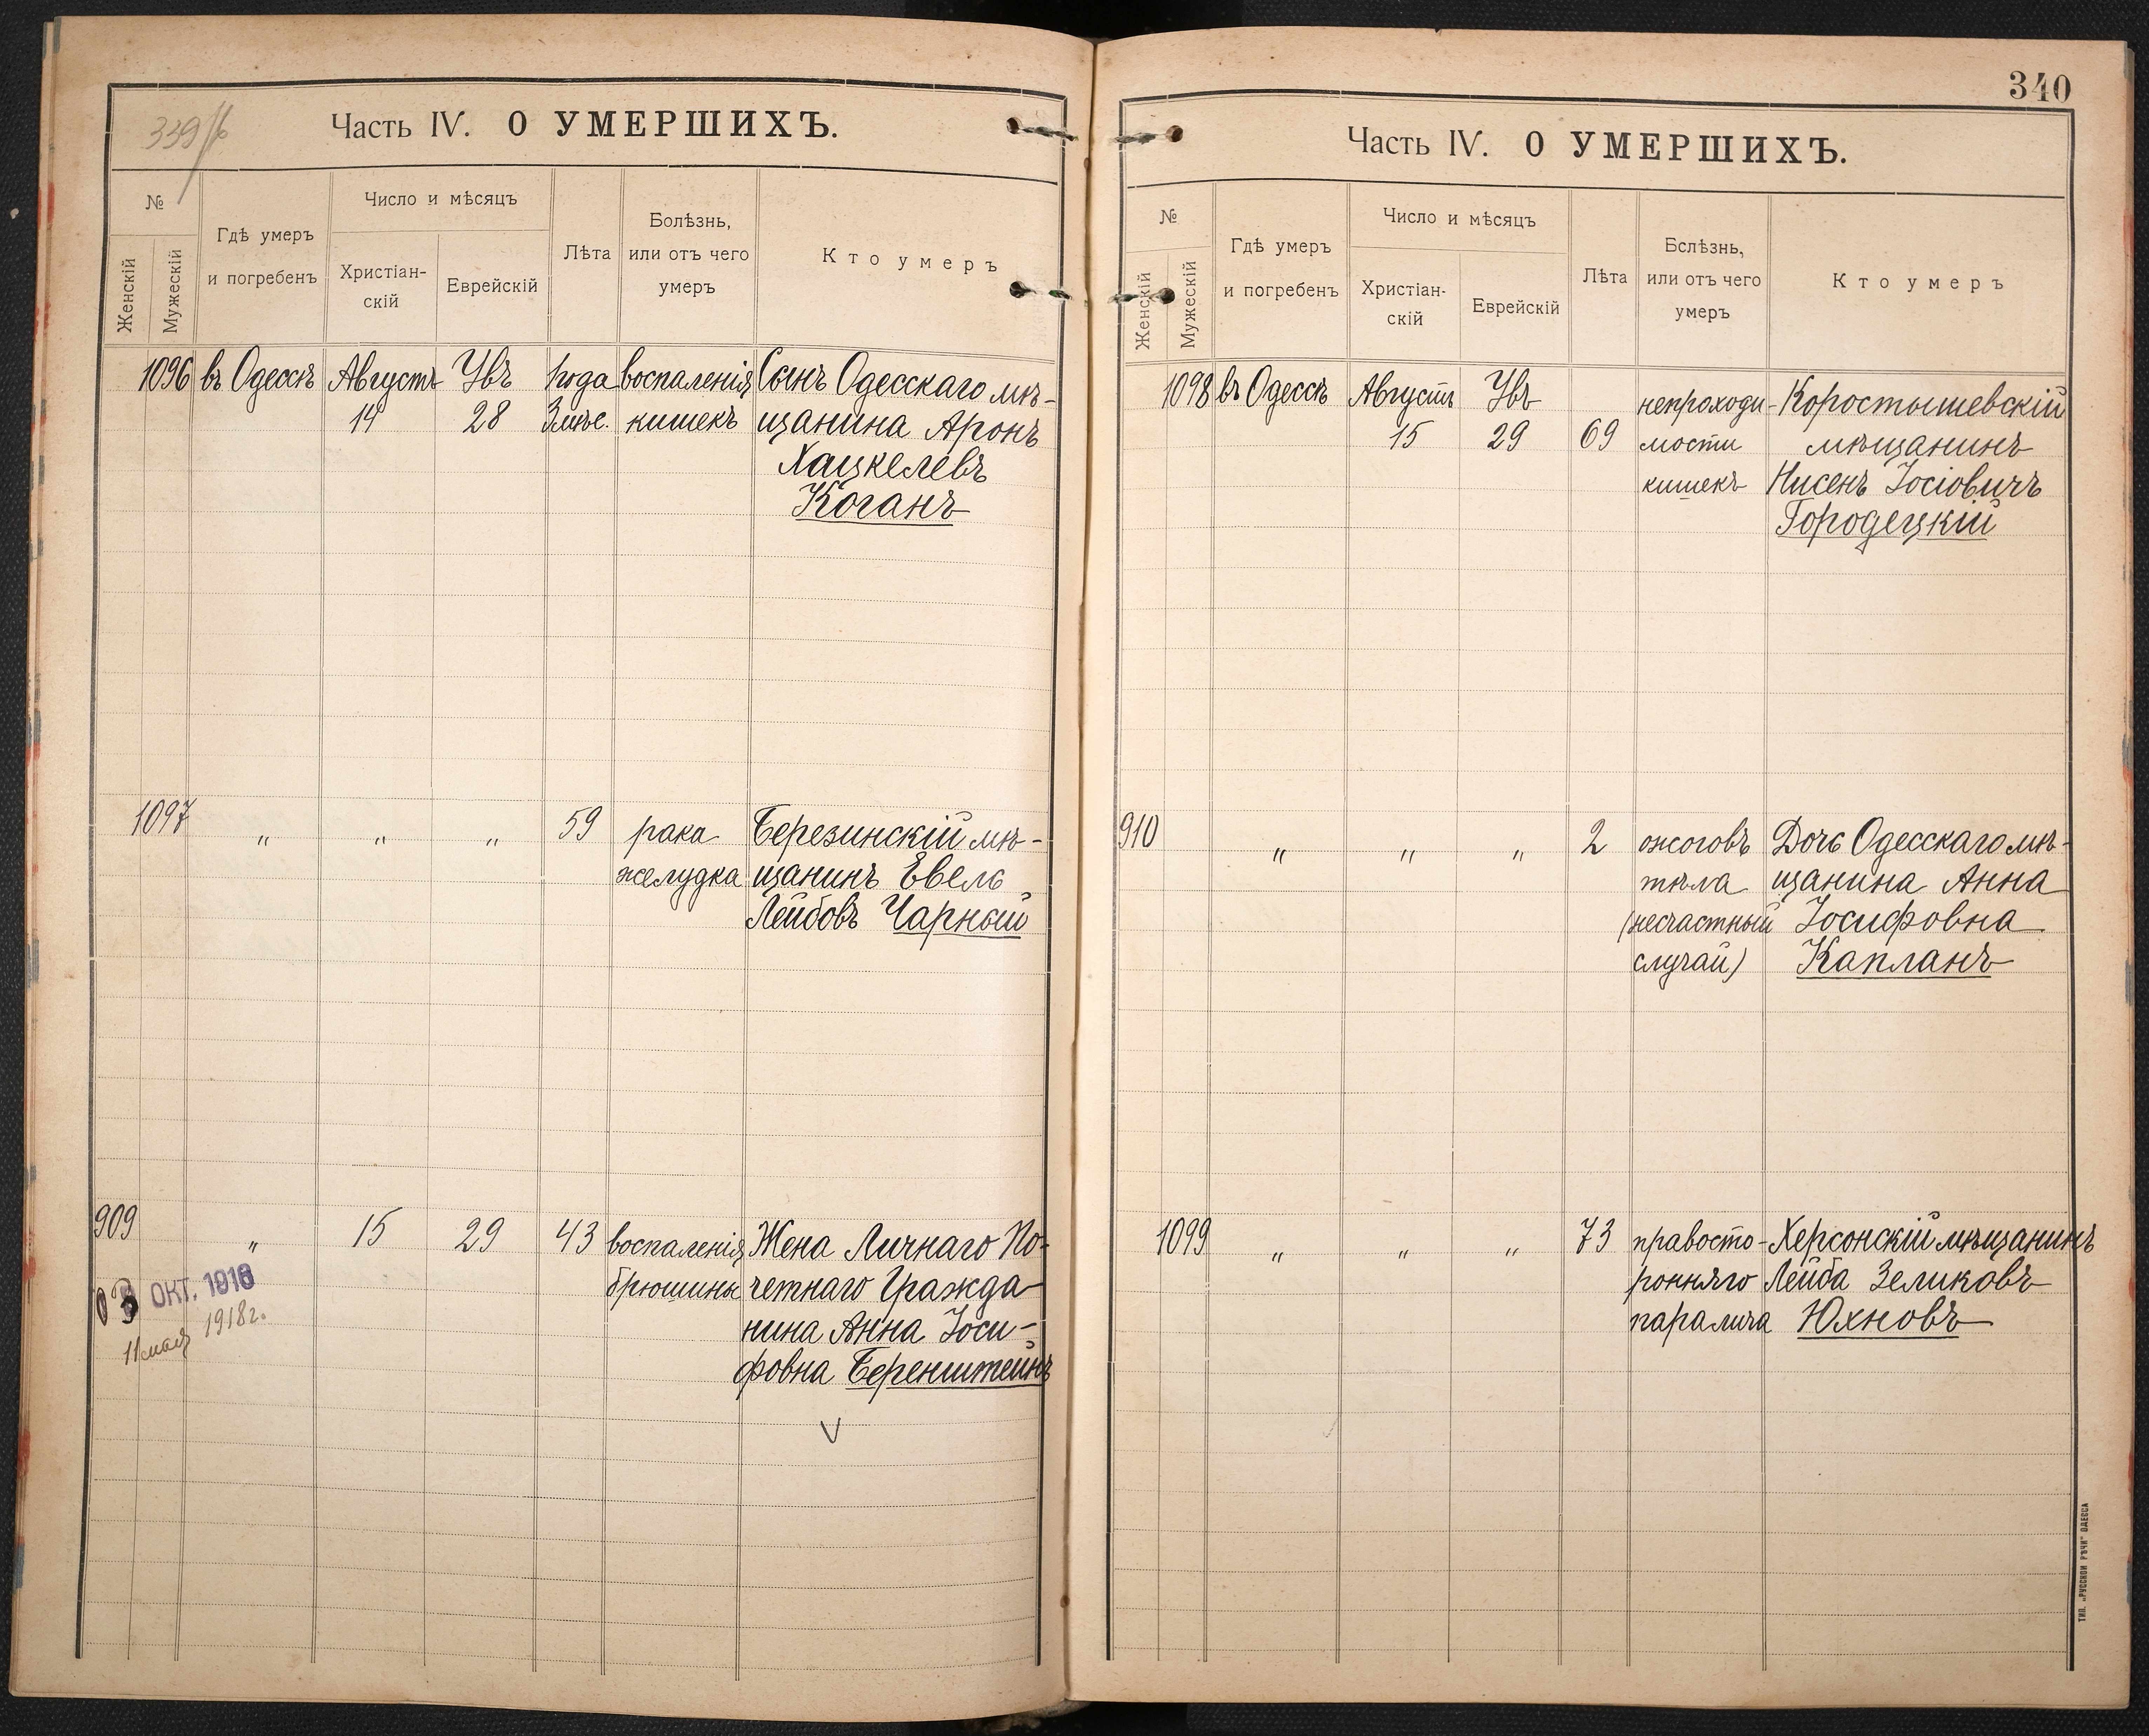 339/б
Часть IV. О УМЕРШИХЪ.
№
Женскій
Мужескій
Гдѣ умеръ
и погребенъ
Число и мѣсяцъ
Христіан-
скій
Еврейскій
Лѣта
Болѣзнь,
или отъ чего
умеръ
Кто умеръ
1096 въ Одессѣ Августъ Увъ 1 года воспаленія Сынъ Одесскаго мѣ-
14 28 3 мѣс. кишекъ щанина Аронъ
Хацкелевъ
Коганъ
1097 " " " 59 рака Березинскій мѣ-
желудка щанинъ Евель
Лейбовъ Чарный
909 " 15 29 43 воспаленія Жена Личнаго По-
брюшины четнаго Гражда-
нина Анна Іоси-
фовна Беренштейнъ
ОКТ. 1916
11 мая 1918 г.
340
Часть IV. О УМЕРШИХЪ.
№
Женскій
Мужескій
Гдѣ умеръ
и погребенъ
Число и мѣсяцъ
Христіан-
скій
Еврейскій
Лѣта
Бслѣзнь,
или отъ чего
умеръ
Кто умеръ
1098 въ Одессѣ Августъ Увъ непроходи- Коростышевскій
15 29 69 мости мѣщанинъ
кишекъ Нисенъ Іосіовичъ
Городецкій
910 " " " 2 ожоговъ Дочь Одесскаго мѣ-
тѣла щанина Анна
(несчастный Іосифовна
случай) Капланъ
1099 " " " 73 правосто- Херсонскій мѣщанинъ
ронняго Лейба Зеликовъ
паралича Юхновъ
ТИП. „РУССКОЙ РѢЧИ" ОДЕССА